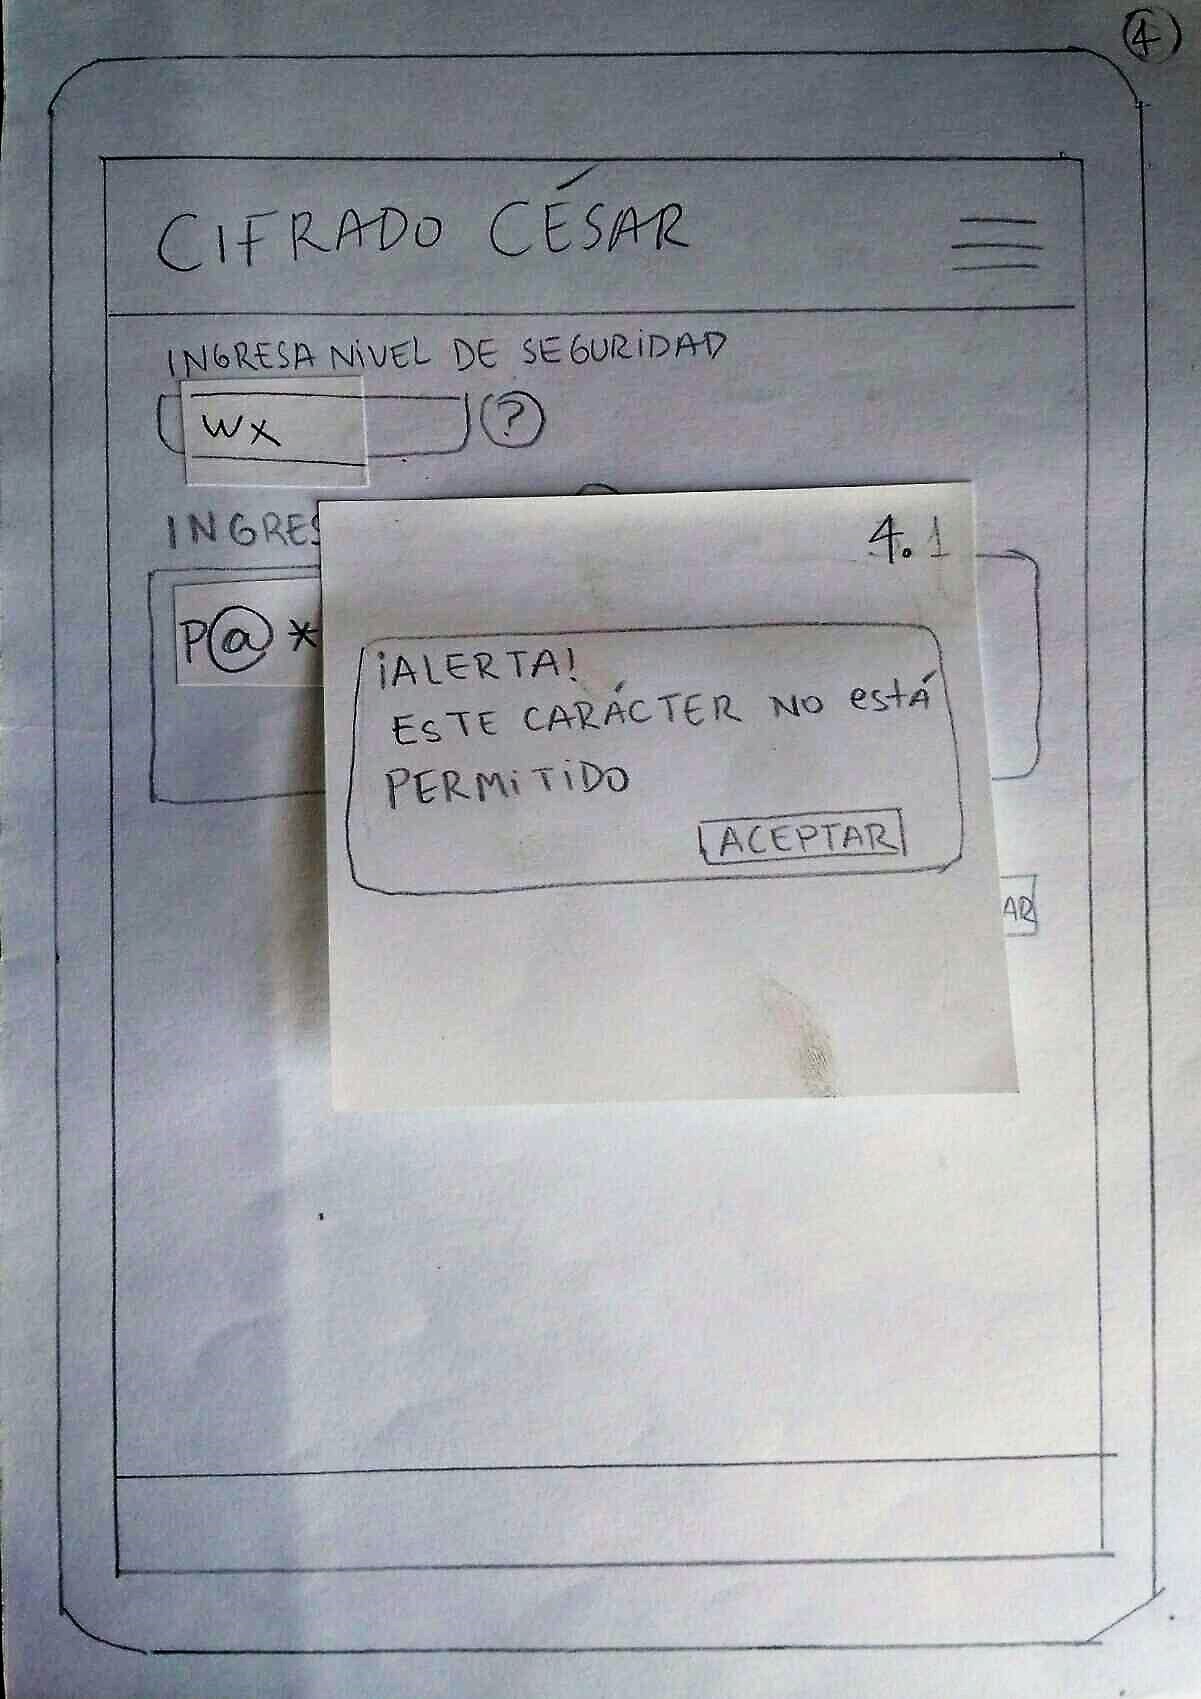 4
CIFRADO CÉSAR
INGRESA NIVEL DE SEGURIDAD
WX
?
INGRES
4.1
P@*
¡ALERTA!
ESTE CARÁCTER NO está
PERMITIDO
ACEPTAR
AR